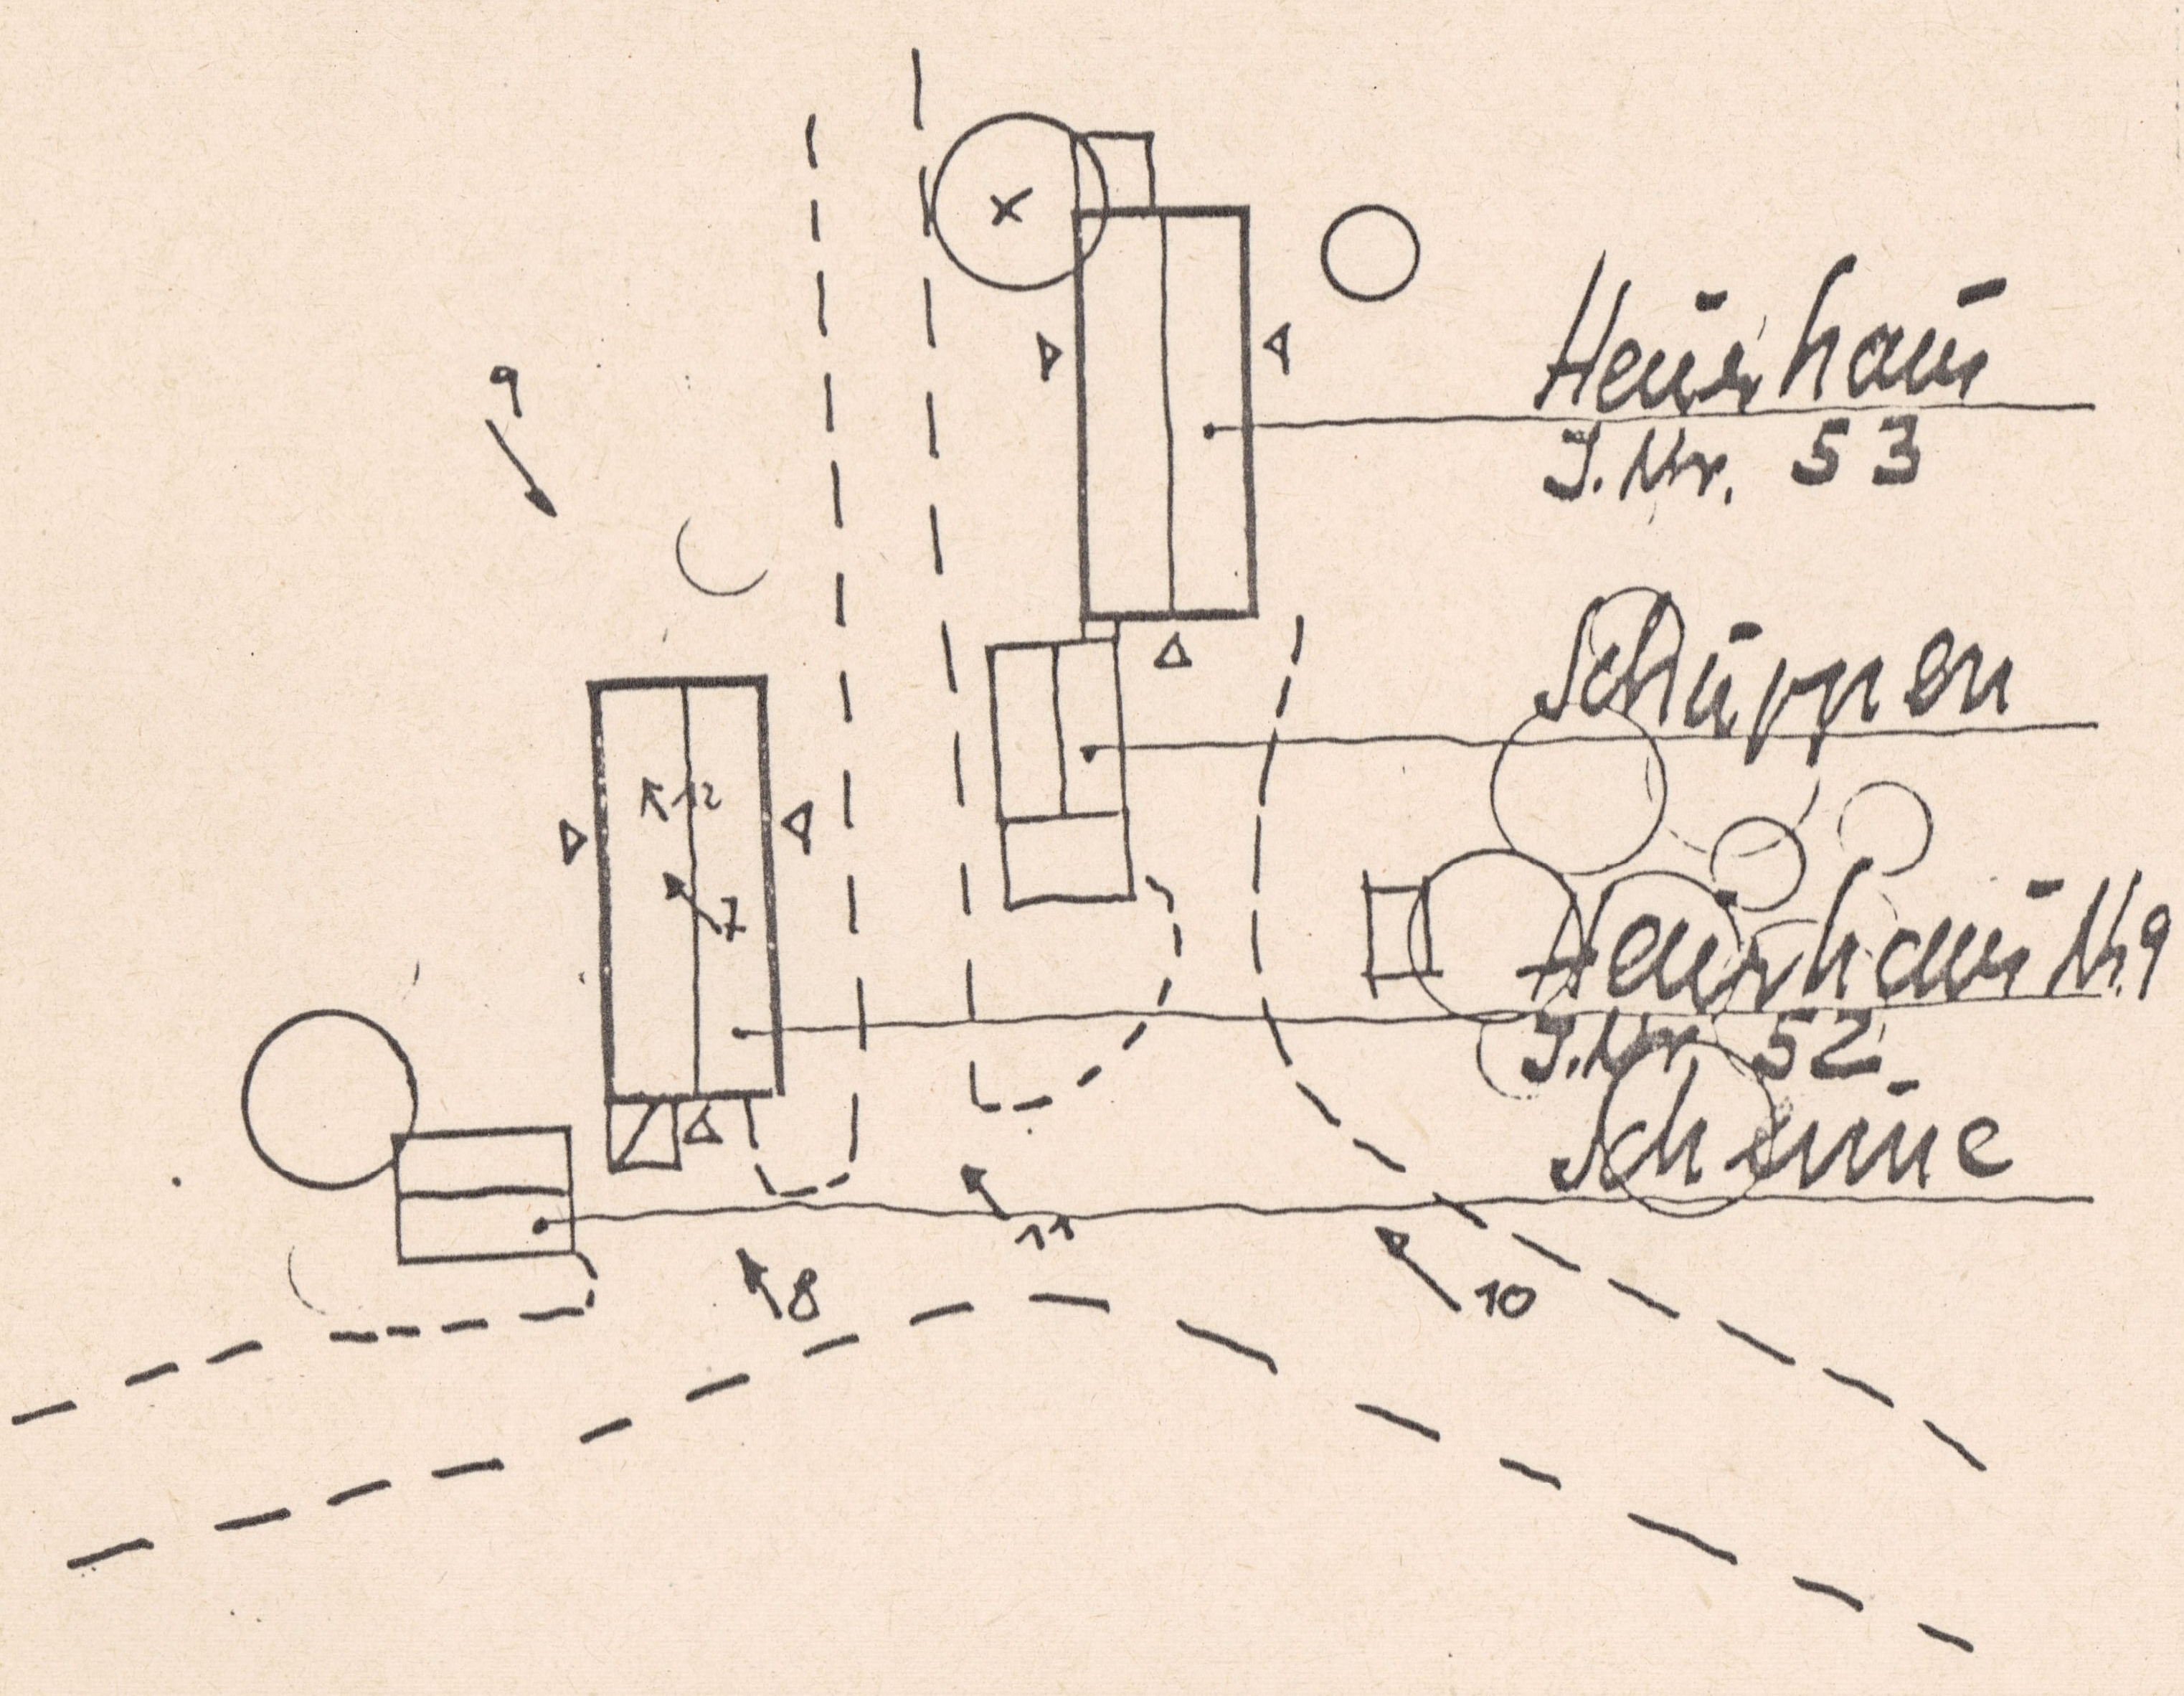 9
Heuerhaus
J.Nr. 53
Schuppen
12
7
Heuerhaus Nr.9
J.Nr. 52
Scheune
11
8
10